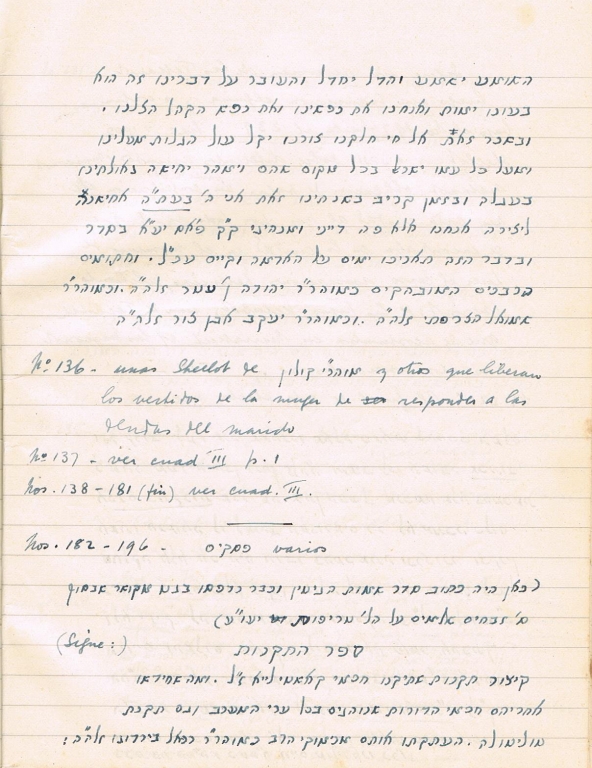 השומע ישמע והדל יחדל והעובר על דברינו זה הוא
בעונו ימות ואנחנו את נפשינו ואת נפש הקהל הצלנו.
ובשכר זאת אל חי חלקנו צורנו יקל עול הגלות מעלינו
ומעל כל עמו ישראל בכל מקום שהם וימהר יחישה גאולתינו
בעגלה ובזמן קריב כאשר אנחינו זאת אני ה' בעתה אחישנה
ליצירה אנחנו אלא פה דייני ומנהיגי ק"ק פאס יע"א בסדר
ובדבר הזה תאריכו ימים על האדמה וקיים עכ"ל. וחתומים
הרבנים המובהקים כמוהר"ר יהודה ן' עטר זלה"ה. וכמוהר"ר
שמואל הצרפתי זלה"ה. וכמוהר"ר יעקב אבן צור זלה"ה
Nº 136 - unas Sheelot de מוהר"י קולון y otros que liberan
los vestidos de la mujer de responder a las
deudas del marido
Nº 137 - ver cuad III p. 1
Nos. 138 - 181 (fin) ver cuad. III.
Nos. 182 - 196 - פסקים varios
(כאן היה כתוב סדר שמות הגיטין וכבר נדפסו בגט מקושר
ס' זבחים שלמים על הל' טריפות יעו"ע)
(Sigue:) ספר התקנות
קיצור תקנות אתיקנו חכמי קאשטילייא ז"ל. ומה שחידשו
אחריהם חכמי הדורות שנוהגים בכל ערי המערב וגם תקנת
מולינולה. העתקתי אותם מכמוקי הרב כמוהר"ר רפאל בירדוגו זלה"ה: